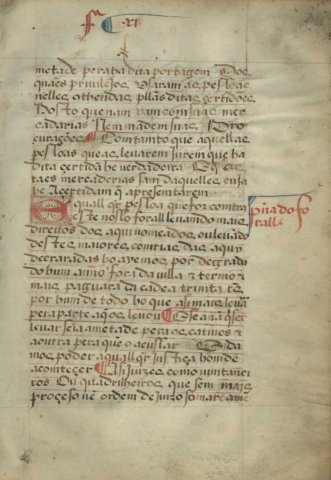 fo xi
metade pera ha dita portagem Dos
quaes priuilejos. Usaram as pessoas
nelles contheudas, pllas ditas certidoes,
Posto que nam vam com suas mer-
cadarias Nem mandem suas Pro
curaçoes Com tanto que aquellas
pessoas que as levarem Jurem que ha
dita certidã he verdadeira E q̃ as
taes mercadarias sam daquelles cuja
he A certidam q̃ apresentarem
E quall q̃r pessoa que for contra
este nosso forall levando mais
direitos dos aquy nomeados ou levado
destes mayores conthias das aquy
decraradas ho avemos por degradado
por hum anno fora da villa & termo &
mais paguara da cadea trinta rs
por hum de todo ho que asi mais levar
pera a parte a q̃ os levou E se a nã q̃ser
levar seja a metade pera os cativos &
a outra pera quem o acusar E da
mos poder a quallq̃r Justiça honde
acontecer Asi juizes como vintanei
ros Ou quadrilheiros que sem mais
proçeso nẽ ordem de juizo sumariame
pẽa do fo
rall